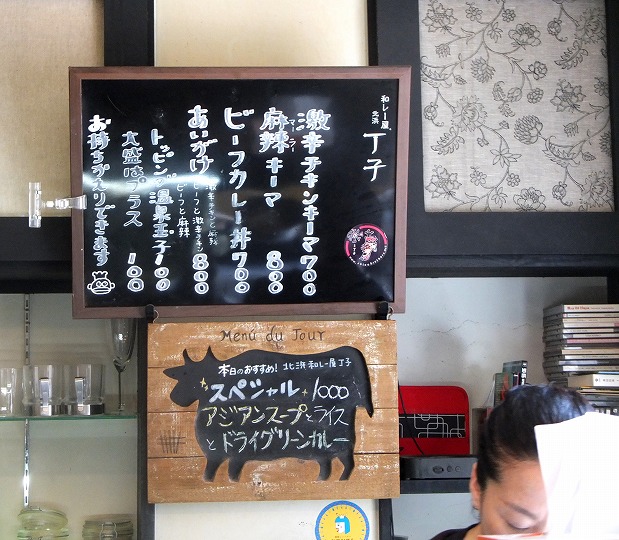 和レー屋
北浜
丁子
激辛チキンキーマ700
麻辣キーマ 800
マーラー
ビーフカレー丼700
あいがけ 800
激辛チキンと麻辣
ビーフと激辛チキン
ビーフと麻辣
トッピング温泉玉子100
大盛はプラス 100
お持ちかえりできます
Menu du Jour
本日のおすすめ! 北浜 和レー屋 丁子
スペシャル 1000
アジアンスープとライス
とドライグリーンカレー